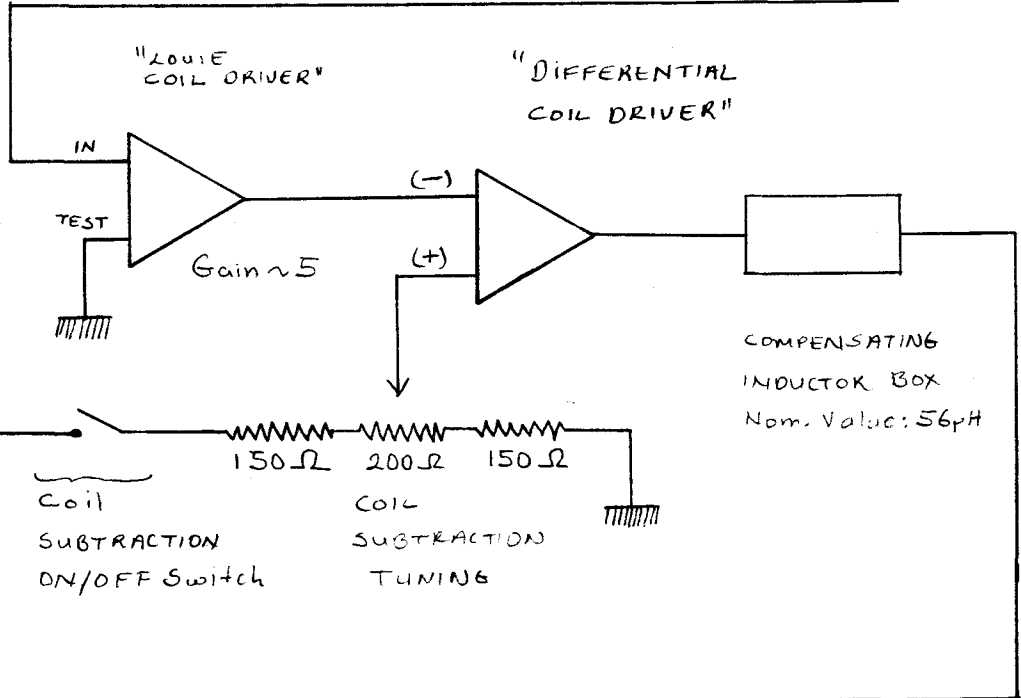 "LOUIE
COIL DRIVER"
"DIFFERENTIAL
COIL DRIVER"
IN
TEST
Gain ~ 5
(-)
(+)
COMPENSATING
INDUCTOR BOX
Nom. Value: 56μH
150Ω
200Ω
150Ω
Coil
SUBTRACTION
ON/OFF Switch
COIL
SUBTRACTION
TUNING